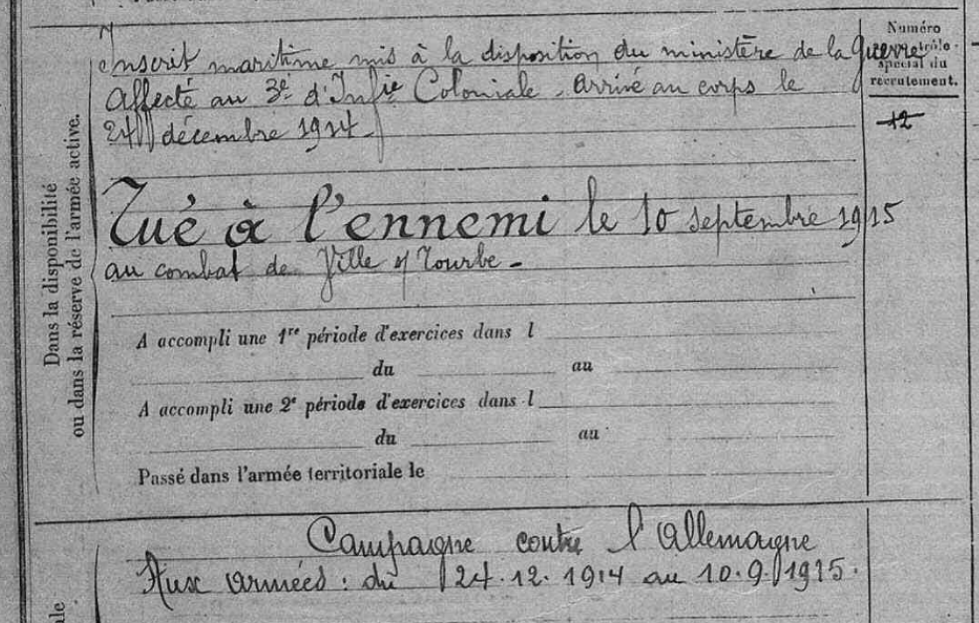 Numéro
spécial du
recrutement.
12
Inscrit maritime mis à la disposition du ministère de la Guerre
Affecté au 3e d'Infie Coloniale. Arrivé au corps le
24 décembre 1914.
Tué à l'ennemi le 10 septembre 1915
au combat de Ville s/ Tourbe -
Dans la disponibilité
ou dans la réserve de l'armée active.
A accompli une 1re période d'exercices dans l
du au
A accompli une 2e période d'exercices dans l
du au
Passé dans l'armée territoriale le
Campagne contre l'Allemagne
Aux armées : du 24.12.1914 au 10.9.1915.